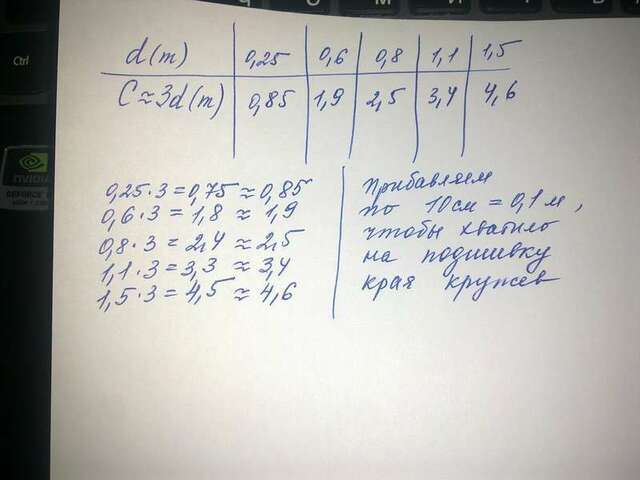 Ctrl
NVIDIA
GEFORCE
d(m) 0,25 0,6 0,8 1,1 1,5
C≈3d(m) 0,85 1,9 2,5 3,4 4,6
0,25·3=0,75≈0,85
0,6·3=1,8≈1,9
0,8·3=2,4≈2,5
1,1·3=3,3≈3,4
1,5·3=4,5≈4,6
Прибавляем
по 10см=0,1м,
чтобы хватило
на подшивку
края кружев